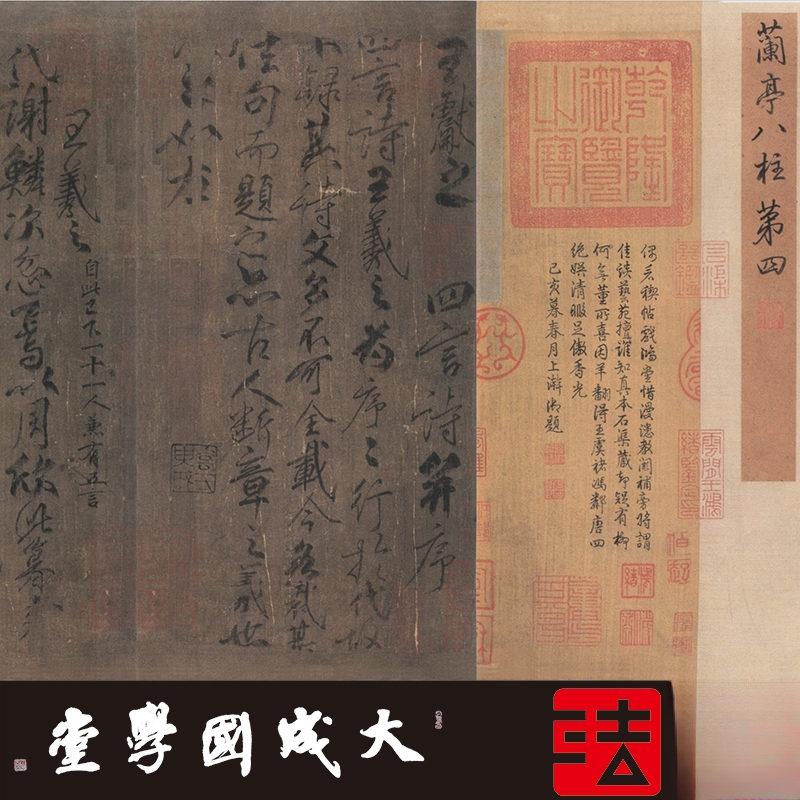 蘭亭八柱第四
乾隆御覽之寶
稧帖戲鴻堂惜漫漶教闕補旁將謂
佳談藝苑擅誰知真本石渠藏却疑有柳
何無董所喜因羊翻得王虞褚馮鄰唐四
絕娛清暇足傲香光
己亥暮春月上澣御題
王獻之四言詩并序
四言詩王羲之爲序〻行於代故
不錄其詩文多不可全載今各裁其
佳句而題之亦古人斷章之義也
如左
王羲之自此已下一十一人兼有五言
代謝鱗次忽焉以周欣此暮春
大成國學堂
法